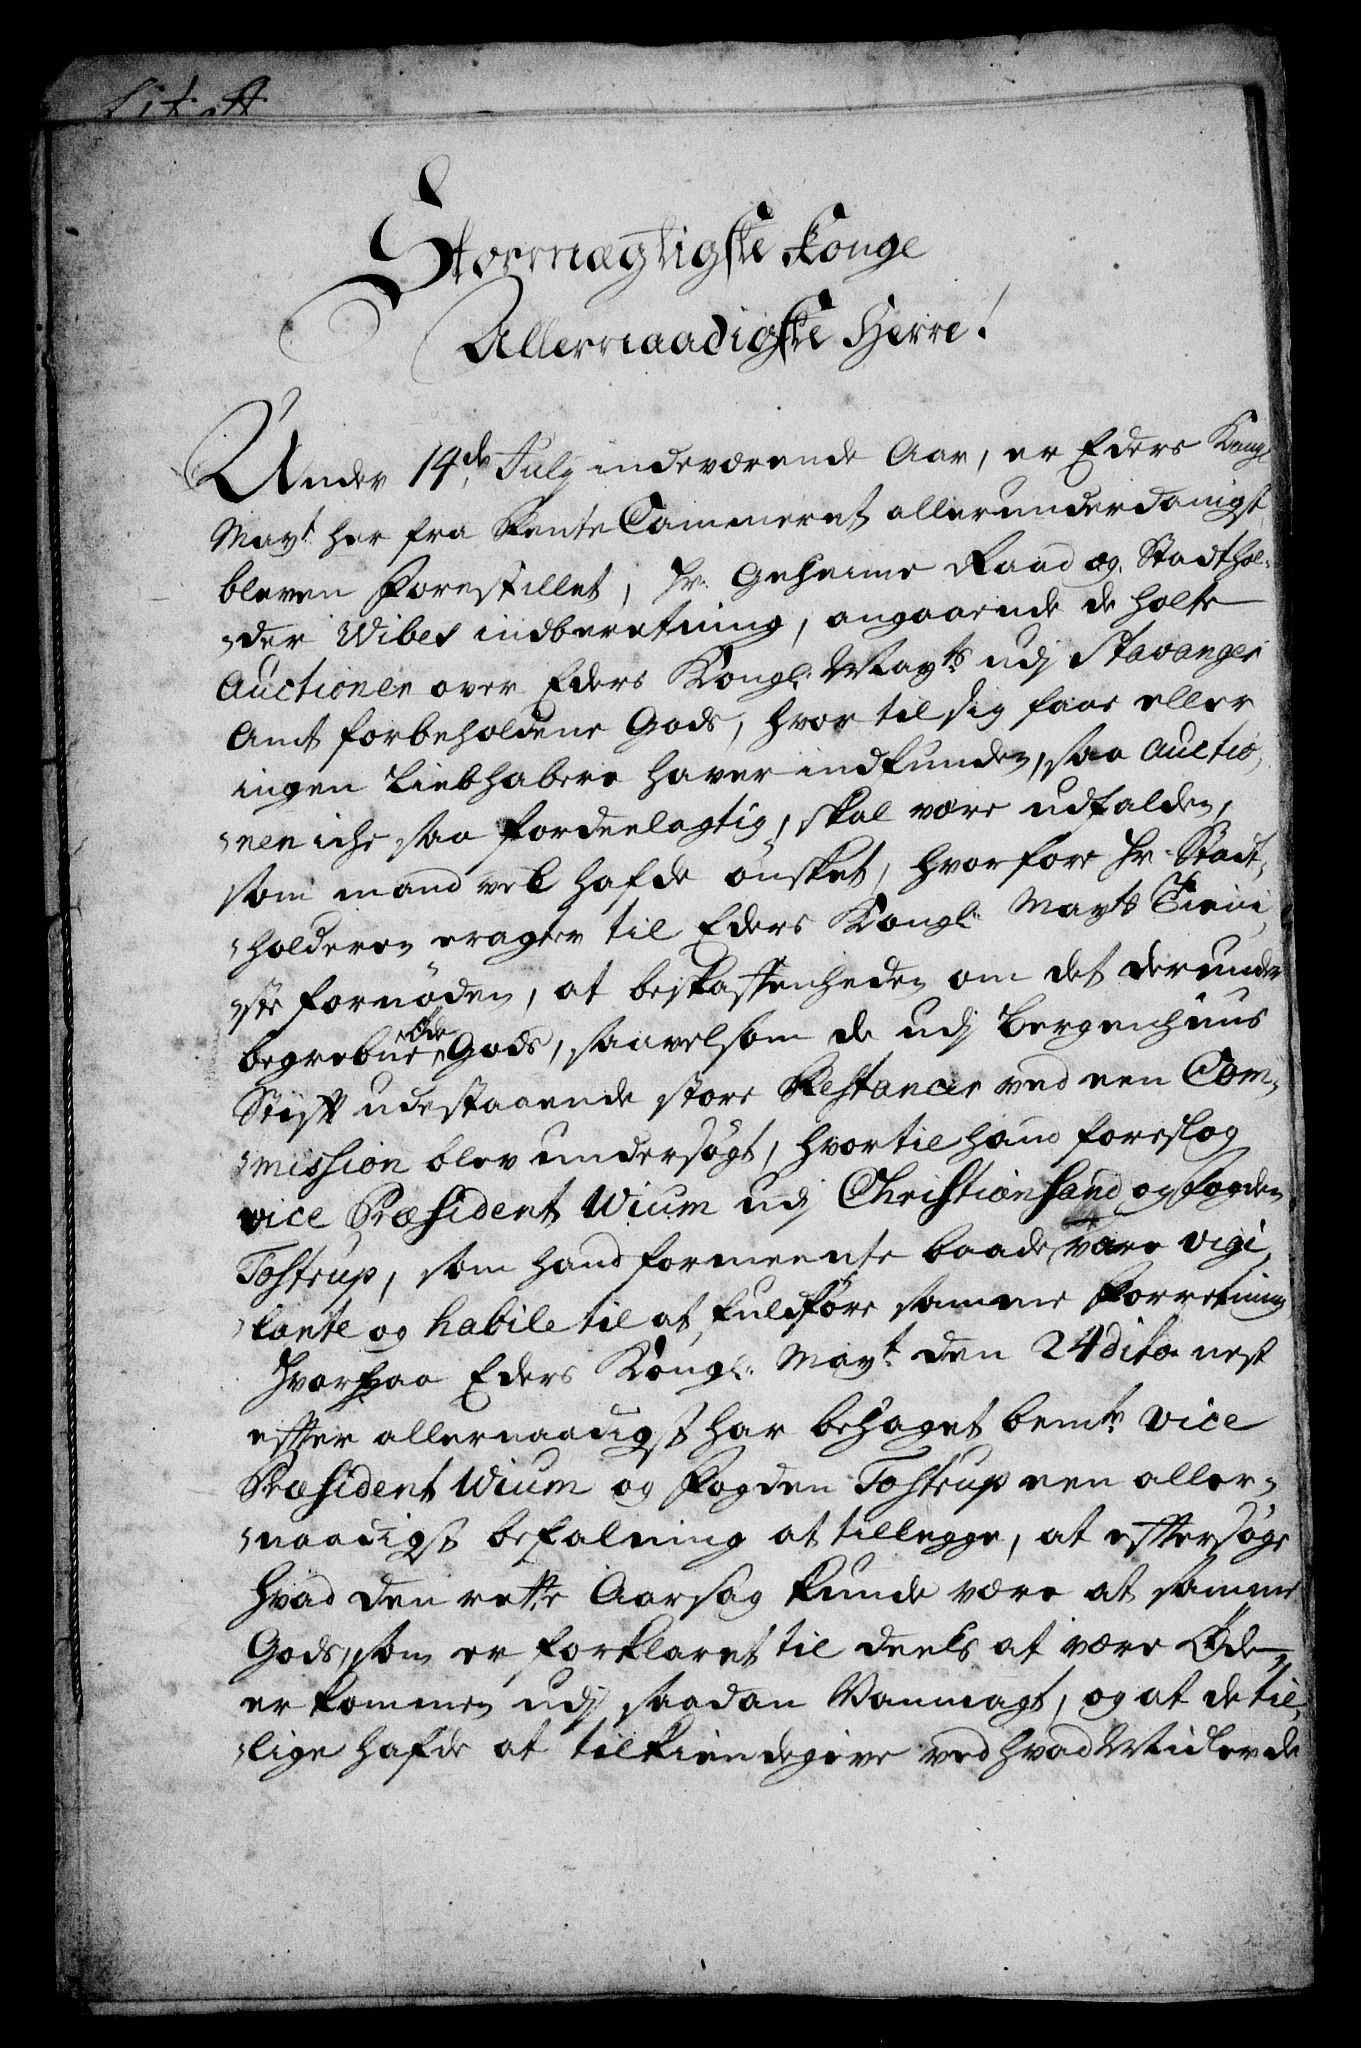 Lit. A
Stormægtigste Konge
Allernaadigste Herre!
Under 14de July indeværende Aar, er Eders Kongl
Mayt. her fra Rente Cammeret allerunderdanigst
bleven Forestillet, Hr. Geheime Raad og Stadthol-
der Wibes indberetning, angaaende de holte
Auctioner over Eders Kongl. Mayts udj Stavanger
Amt forbeholdene Gods, hvor til sig faae eller
ingen Liebhabere haver indfunden, saa auctio-
nen iche saa fordeelagtig, skal være udfalden,
som mand vel hafde ønsket, hvorfore Hr. Stadt-
holderen eragter til Eders Kongl. Mayts Tieni-
ste fornøden, at beskaffenheden om det derunder
begrebne øde Gods, saavelsom de udj Bergenhuus
Stift udestaaende store Restancer ved een Com-
mission blev undersøgt, hvortil hand foreslog
vice Præsident Wium udj Christiansand og Fogden
Tostrup, som hand formeente baade være vigi-
lante og habile til at fuldføre samme Forretning
Hvorpaa Eders Kongl. Mayt. den 24 dito nest
efter allernaadigst har behaget bemte. Vice
Præsident Wium og Fogden Tostrup een aller-
naadigst befalning at tillegge, at eftersøge
hvad den rette Aarsag kunde være at samme
Gods, som er forklaret til deels at være Øde,
er kommen udj saadan Vanmagt, og at de til-
lige hafde at tilkiendegive ved hvad Midler de